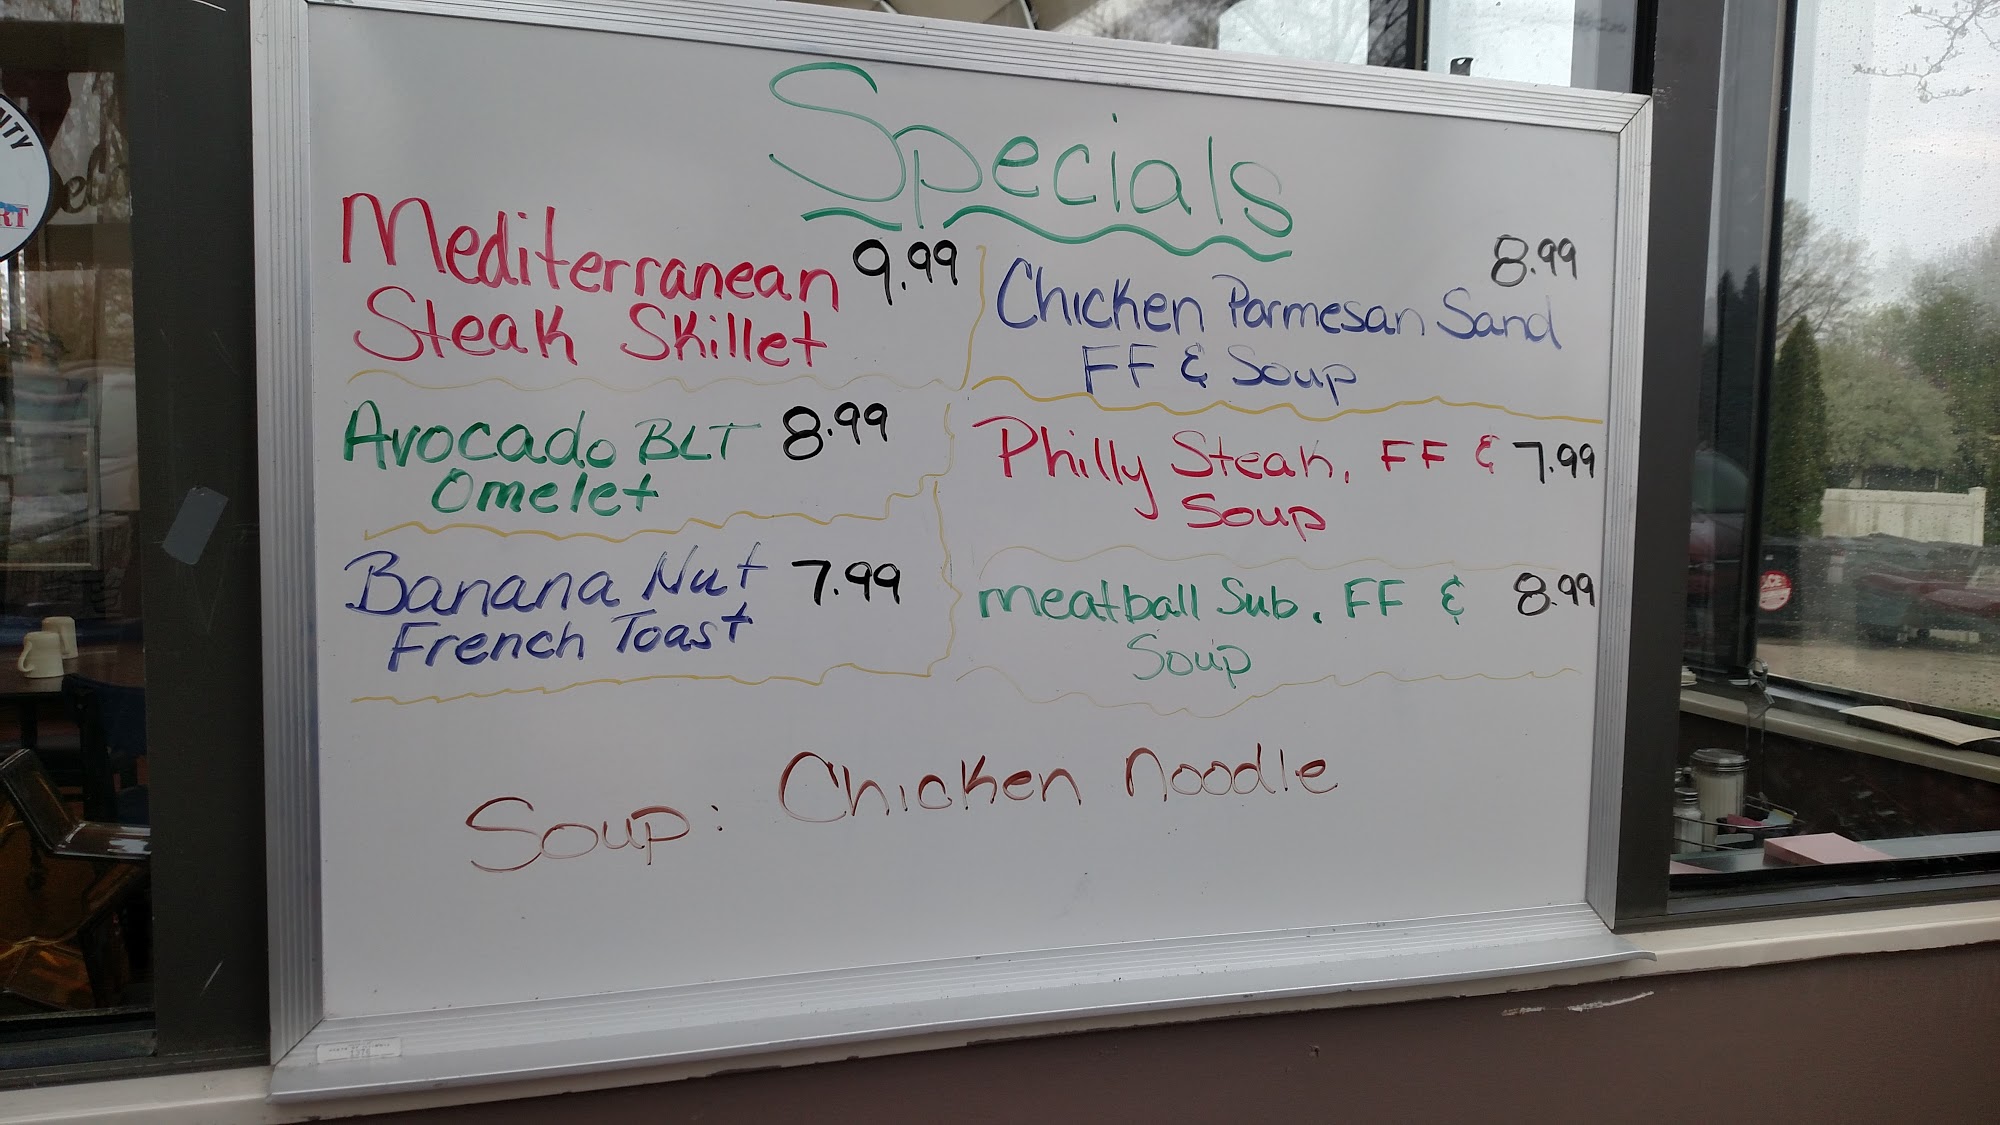 Specials
Mediterranean 9.99
Steak Skillet
Avocado BLT 8.99
Omelet
Banana Nut 7.99
French Toast
8.99
Chicken Parmesan Sand
FF & Soup
Philly Steak, FF & 7.99
Soup
meatball Sub, FF & 8.99
Soup
Soup: Chicken noodle
NTY
RT